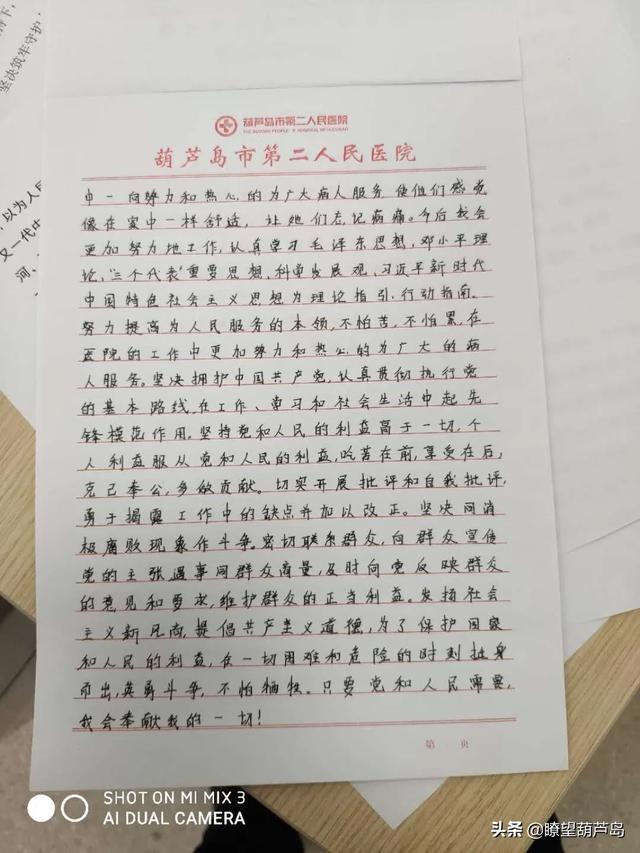 持下,
坚决筑牢守护
以为人民
又一代中
河、
葫芦岛市第二人民医院
THE SECOND PEOPLE'S HOSPITAL OF HULUDAO
葫芦岛市第二人民医院
中一向努力和热心的为广大病人服务使他们感觉
像在家中一样舒适,让她们忘记病痛。今后我会
更加努力地工作,认真学习毛泽东思想,邓小平理
论,“三个代表”重要思想,科学发展观、习近平新时代
中国特色社会主义思想为理论指引,行动指南。
努力提高为人民服务的本领,不怕苦,不怕累,在
医院的工作中更加努力和热心的为广大的病
人服务。坚决拥护中国共产党,认真贯彻执行党
的基本路线,在工作、学习和社会生活中起先
锋模范作用。坚持党和人民的利益高于一切,个
人利益服从党和人民的利益,吃苦在前,享受在后,
克己奉公,多做贡献。切实开展批评和自我批评,
勇于揭露工作中的缺点并加以改正。坚决同消
极腐败现象作斗争。密切联系群众,向群众宣传
党的主张遇事同群众商量,及时向党反映群众
的意见和要求,维护群众的正当利益。发扬社会
主义新风尚,提倡共产主义道德,为了保护国家
和人民的利益,在一切困难和危险的时刻挺身
而出,英勇斗争,不怕牺牲。只要党和人民需要,
我会奉献我的一切!
第 页
SHOT ON MI MIX 3
AI DUAL CAMERA
头条 @瞭望葫芦岛